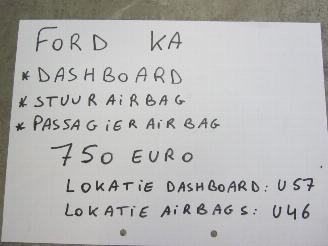 FORD KA
* DASHBOARD
* STUUR AiRBAG
* PASSAGiER AiRBAG
750 EURO
LOKATiE DASHBOARD: U57
LOKATiE AiRBAGS: U46